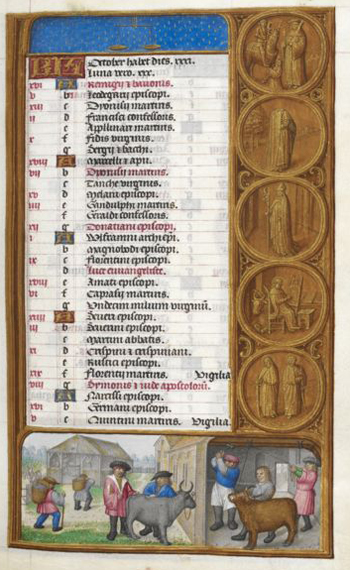 October habet dies. xxxi.
Luna vero. xxx.
xvi A Remigii & bavonis.
v b Leodegarii episcopi.
xiii c Dyonisii martiris.
ii d Francisci confessoris.
e Appllinari martiris.
x f Fidis virginis.
g Sergii & bachi.
xviii A Marcelli & apu.
vii b Dyonisii martiris.
c Tanche virginis.
xv d Melani episcopi.
iiii e Gundulphi martiris.
f Giraldi confessoris.
xii g Donatiani episcopi.
i A Wlframni archiepi.
b Magnobodi episcopi.
ix c Florentini episcopi.
d Luce euuangeliste.
xvii e Amati episcopi.
vi f Caprasii martiris.
g Undecim milium virginum.
xiiii A Severi episcopi.
iii b Severini episcopi.
c Martini abbatis.
xi d Crispini & crispiniani.
e Rustici episcopi.
xix f Florentii martiris. Vigilia
viii g Symonis & iude apostolorum.
A Narcissi episcopi.
xvi b Germani episcopi.
v c Quintini martiris. Vigilia.